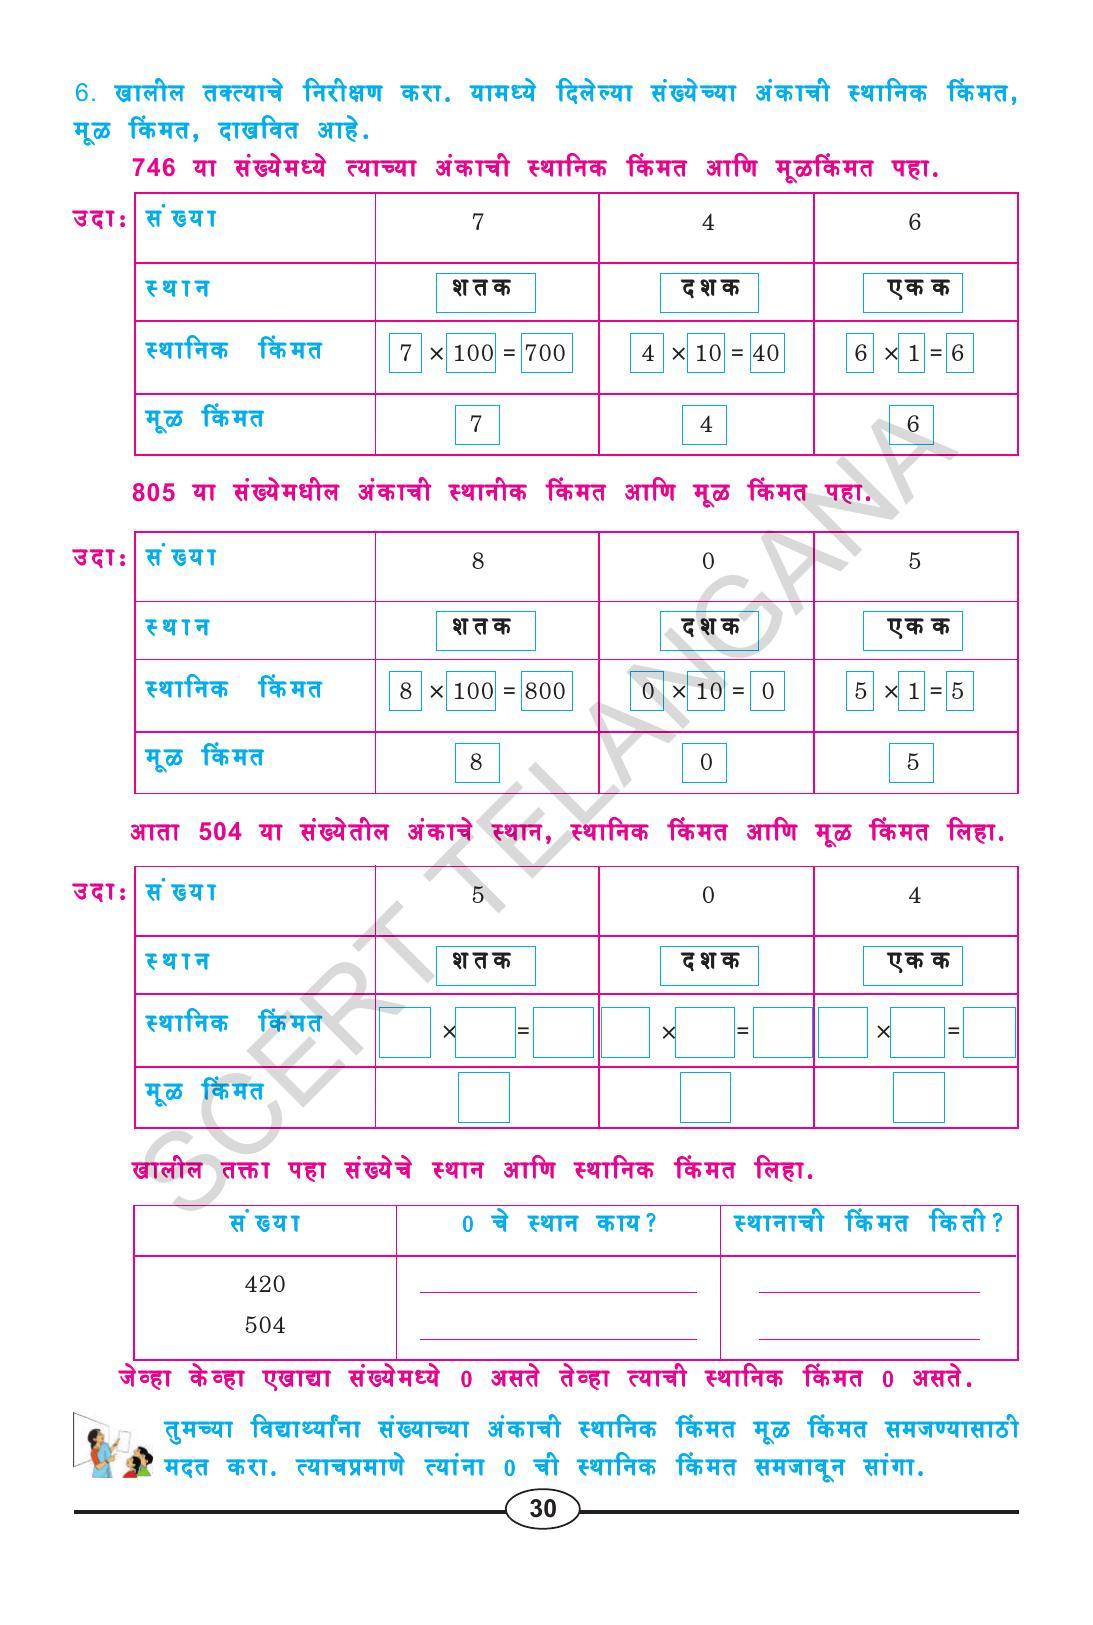 6. खालील तक्त्याचे निरीक्षण करा. यामध्ये दिलेल्या संख्येच्या अंकाची स्थानिक किंमत,
मूळ किंमत, दाखवित आहे.
746 या संख्येमध्ये त्याच्या अंकाची स्थानिक किंमत आणि मूळकिंमत पहा.
उदा: संख्या 7 4 6
स्थान शतक दशक एकक
स्थानिक किंमत 7 × 100 = 700 4 × 10 = 40 6 × 1 = 6
मूळ किंमत 7 4 6
805 या संख्येमधील अंकाची स्थानीक किंमत आणि मूळ किंमत पहा.
उदा: संख्या 8 0 5
स्थान शतक दशक एकक
स्थानिक किंमत 8 × 100 = 800 0 × 10 = 0 5 × 1 = 5
मूळ किंमत 8 0 5
आता 504 या संख्येतील अंकाचे स्थान, स्थानिक किंमत आणि मूळ किंमत लिहा.
उदा: संख्या 5 0 4
स्थान शतक दशक एकक
स्थानिक किंमत × = × = × =
मूळ किंमत
खालील तक्ता पहा संख्येचे स्थान आणि स्थानिक किंमत लिहा.
संख्या 0 चे स्थान काय? स्थानाची किंमत किती?
420
504
जेव्हा केव्हा एखाद्या संख्येमध्ये 0 असते तेव्हा त्याची स्थानिक किंमत 0 असते.
तुमच्या विद्यार्थ्यांना संख्याच्या अंकाची स्थानिक किंमत मूळ किंमत समजण्यासाठी
मदत करा. त्याचप्रमाणे त्यांना 0 ची स्थानिक किंमत समजावून सांगा.
30
SCERT TELANGANA